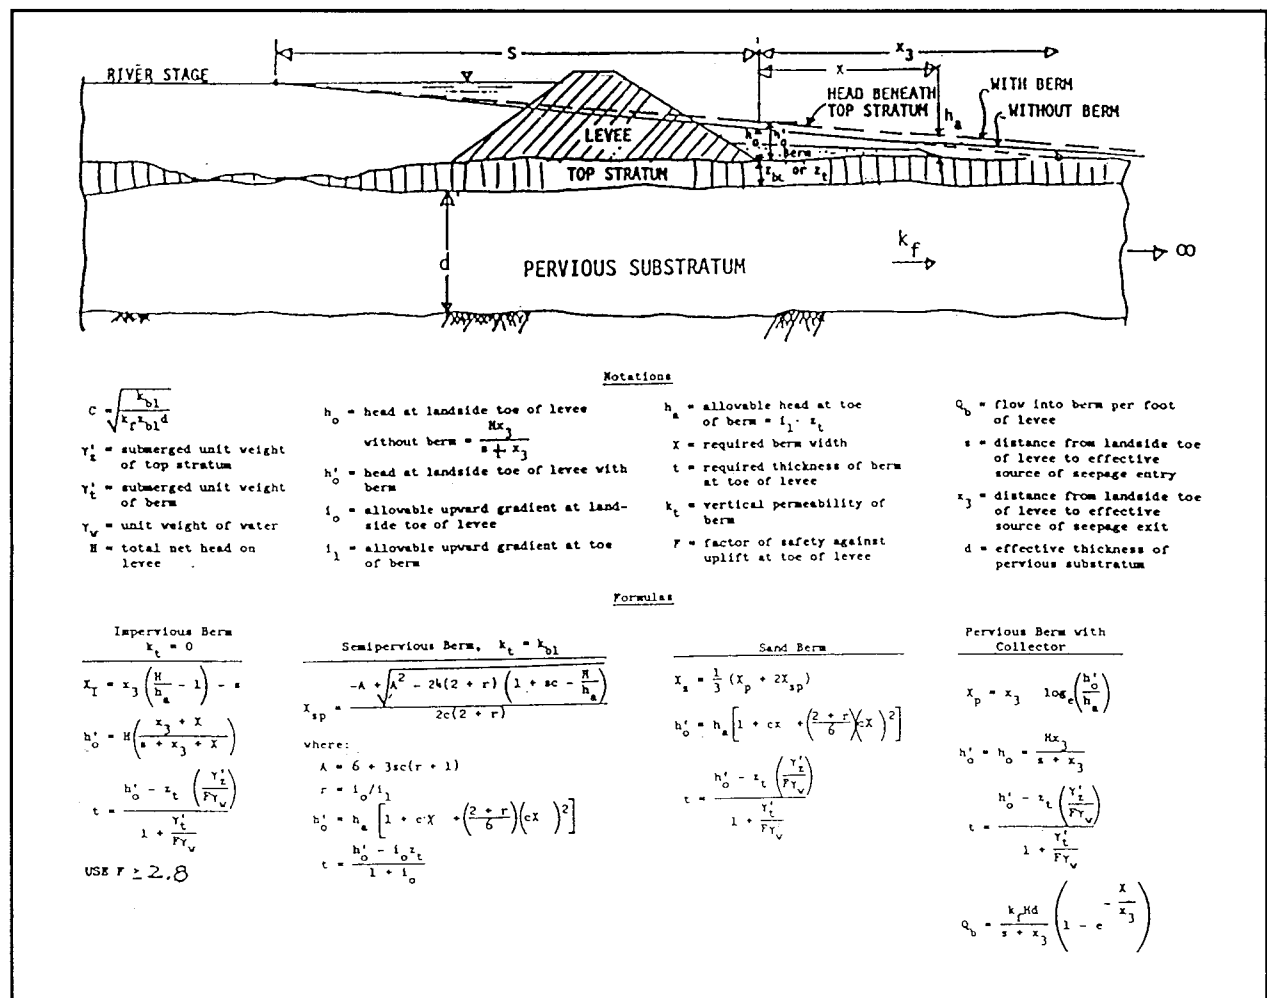 S
x₃
X
RIVER STAGE
HEAD BENEATH
TOP STRATUM
WITH BERM
WITHOUT BERM
hₐ
LEVEE
h'ₒ
Berm
TOP STRATUM
z_bL or z_t
d
k_f
∞
PERVIOUS SUBSTRATUM
Notations
C = √(k_bl / (k_f z_bl d))
γ'_z = submerged unit weight
of top stratum
γ'_t = submerged unit weight
of berm
γ_w = unit weight of water
H = total net head on
levee
h_o = head at landside toe of levee
without berm = Hx₃ / (s + x₃)
h'_o = head at landside toe of levee with
berm
i_o = allowable upward gradient at land-
side toe of levee
i_1 = allowable upward gradient at toe
of berm
h_a = allowable head at toe
of berm = i_1 · z_t
X = required berm width
t = required thickness of berm
at toe of levee
k_t = vertical permeability of
berm
F = factor of safety against
uplift at toe of levee
Q_b = flow into berm per foot
of levee
s = distance from landside toe
of levee to effective
source of seepage entry
x₃ = distance from landside toe
of levee to effective
source of seepage exit
d = effective thickness of
pervious substratum
Formulas
Impervious Berm
k_t = 0
X_I = x₃ (H/h_a - 1) - s
h'_o = H((x₃ + X) / (s + x₃ + X))
t = (h'_o - z_t (γ'_z / Fγ_w)) / (1 + γ'_t / Fγ_w)
USE F ≥ 2.8
Semipervious Berm, k_t = k_bl
X_sp = (-A + √(A² - 24(2 + r) (1 + sc - H/h_a))) / (2c(2 + r))
where:
A = 6 + 3sc(r + 1)
r = i_o/i_1
h'_o = h_a [1 + cX + ((2 + r)/6) (cX)²]
t = (h'_o - i_o z_t) / (1 + i_o)
Sand Berm
X_s = 1/3 (X_p + 2X_sp)
h'_o = h_a [1 + cx + ((2 + r)/6) (cX)²]
t = (h'_o - z_t (γ'_z / Fγ_w)) / (1 + γ'_t / Fγ_w)
Pervious Berm with
Collector
X_p = x₃ log_e (h'_o / h_a)
h'_o = h_o = Hx₃ / (s + x₃)
t = (h'_o - z_t (γ'_z / Fγ_w)) / (1 + γ'_t / Fγ_w)
Q_b = (k_f Hd / (s + x₃)) (1 - e^(-X/x₃))